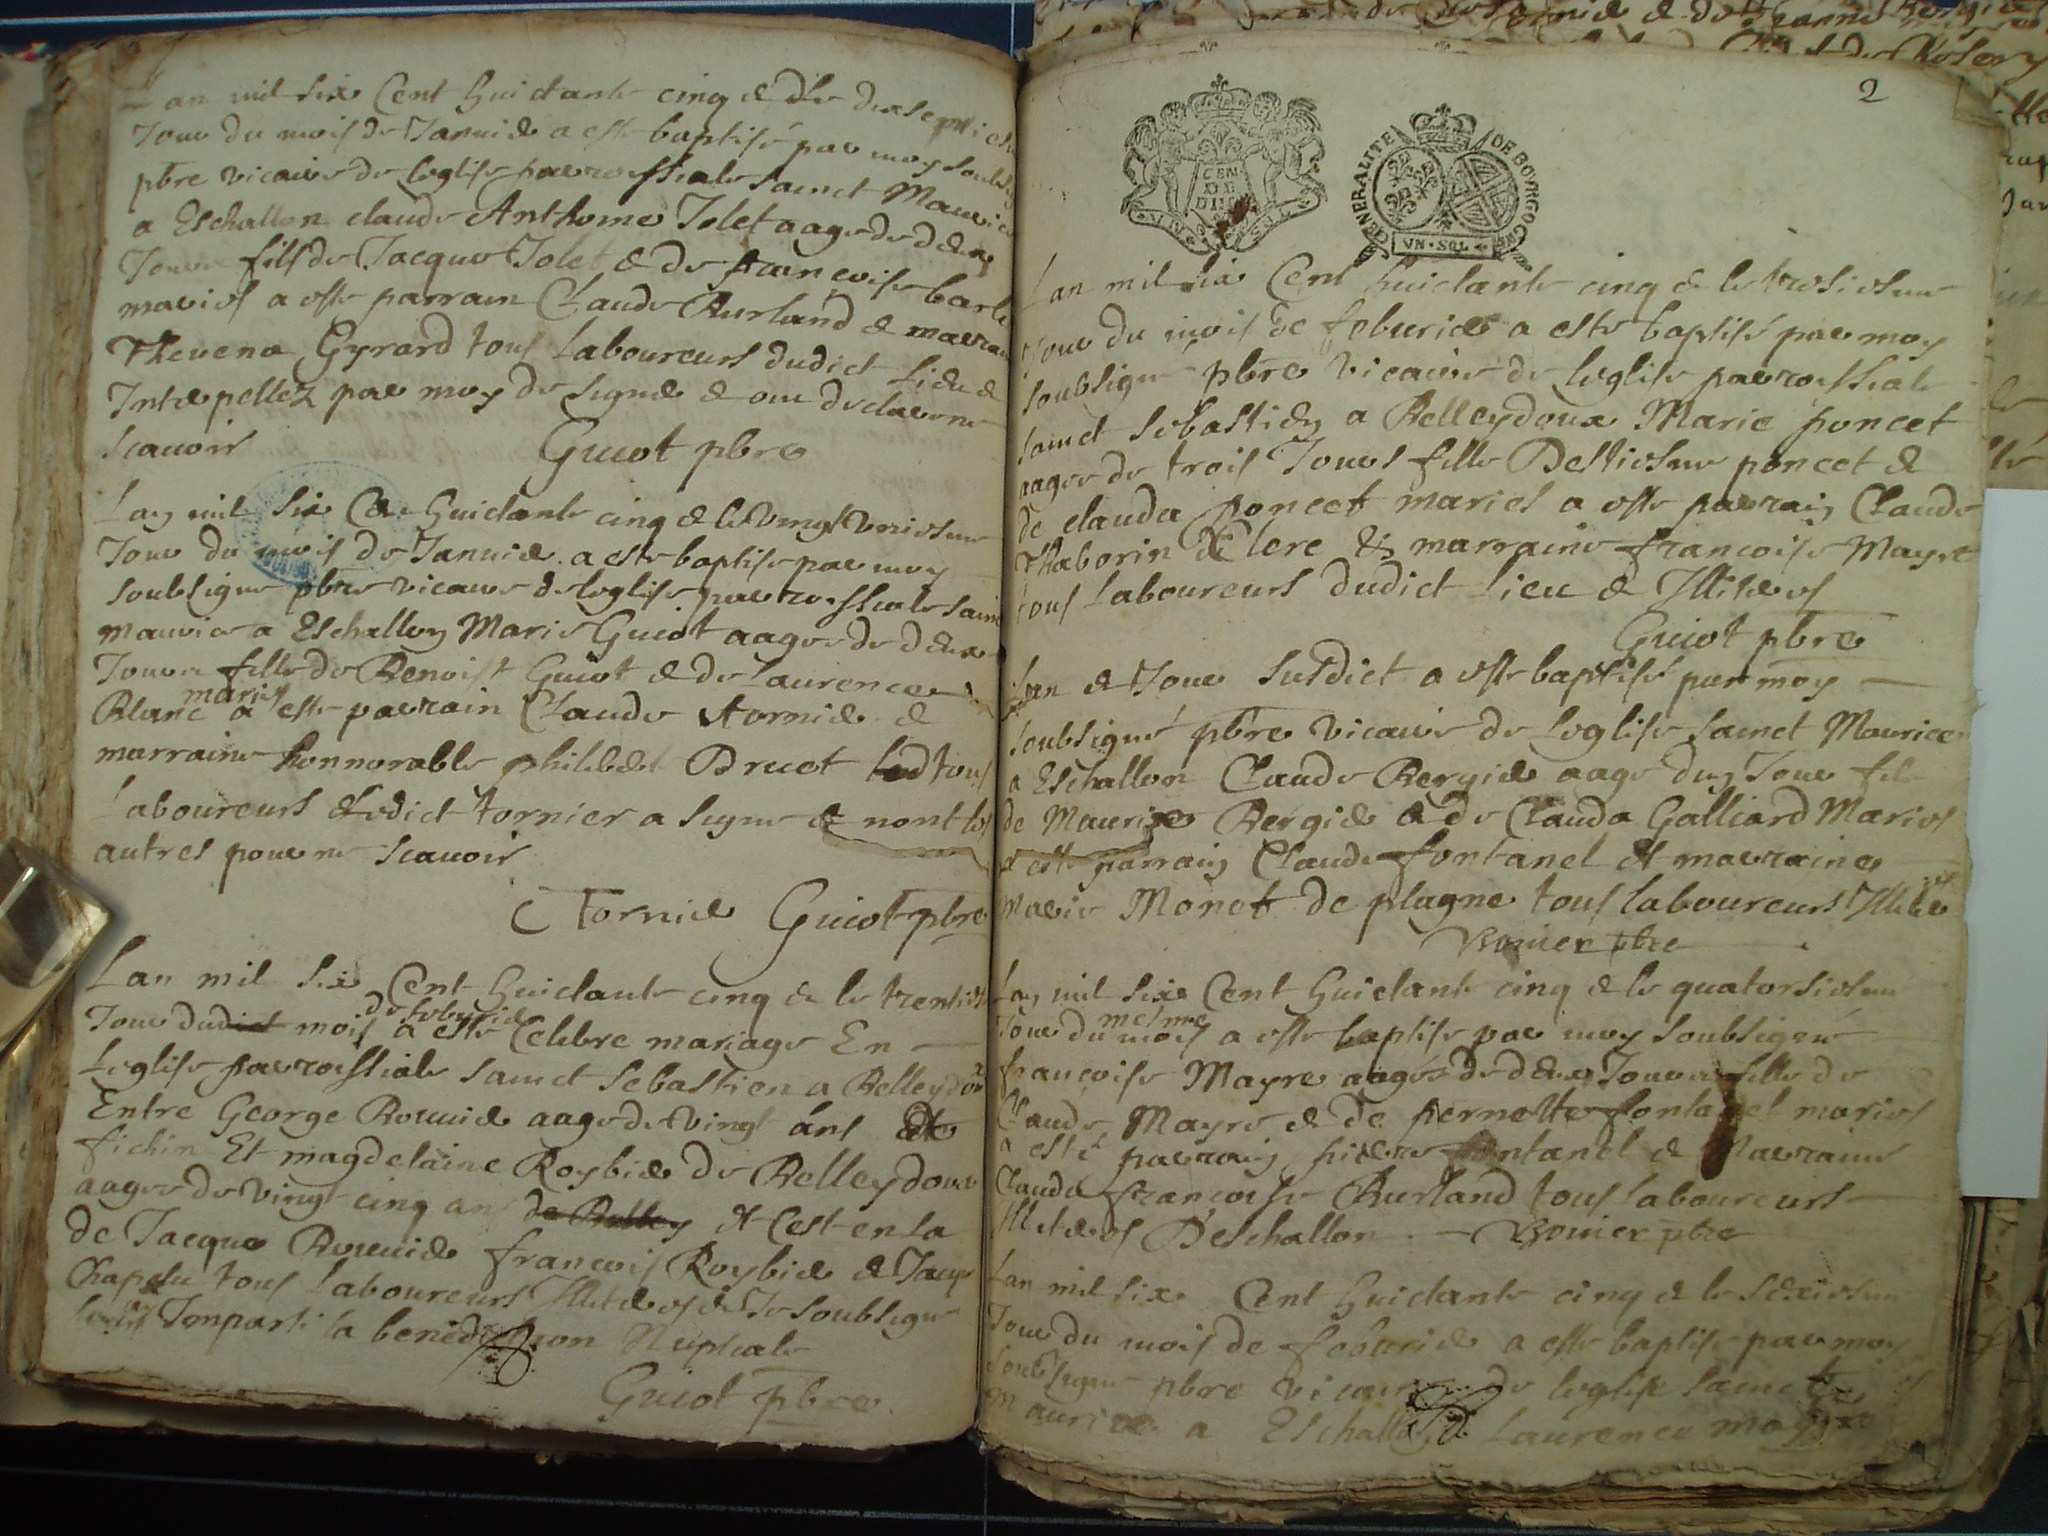 Lan mil six Cent huictante cinq & le dixseptiesme
Jour du mois de Januier a este baptise par moy soubsigne
pbre vicaire de leglise parrossiale sainct Maurice
a Eschallon claude Anthome Jolet aage de deux
Jours fils de Jacque Jolet & de francoise barle
maries a este parrain Claude Burland & marraine
Thevena Gyrard tous laboureurs dudict lieu &
Interpellez par moy de signer & ont declare ne
scauoir
Guiot pbre
Lan mil six Cent huictante cinq & le vingt vniesme
Jour du mois de Januier a este baptise par moy
soubsigne pbre vicaire de leglise parrossiale sainct
maurice a Eschallon Marie Guiot aagee de deux
Jours fille de Benoist Guiot & de Laurence
Blanc maries a este parrain Claude tornier &
marraine honnorable philiberte Druot tous
Laboureurs & ledict tornier a signe & non les
autres pour ne scauoir
C Tornier Guiot pbre
Lan mil six Cent huictante cinq & le trentiesme
Jour dudict mois de feburier a este Celebre mariage En
Leglise parrossiale sainct Sebastien a Belleydoux
Entre George Rouuier aage de vingt ans de
fichin Et magdelaine Roybier de Belleydoux
aagee de vingt cinq ans de Belley & cest en la
de Jacque Rouuier francois Roybier & Jacque
Chapelu tous laboureurs Illiteres & Je soubsigne
leur ay Imparti la benediction Nuptiale
Guiot pbre
2
CEN
DE
DIJON
VN SOL
GENERALITE DE BOVRGOGNE
VN·SOL
Lan mil six Cent huictante cinq & le troisiesme
Jour du mois de feburier a este baptise par moy
soubsigne pbre vicaire de leglise parrossiale
sainct Sebastien a Belleydoux Marie poncet
aagee de trois Jours fille Destiesne poncet &
de clauda poncet maries a este parrain Claude
Thaborin Clerc & marraine francoise Mayre
tous laboureurs dudict lieu & Illiteres
Guiot pbre
Lan & Jour susdict a este baptisé par moy
soubsigné pbre vicaire de leglise sainct Maurice
a Eschallon Claude Bergier aage dun Jour fils
de Maurice Bergier & de Clauda Galliard Maries
a este parrain Claude fontanel & marraine
Marie Monet de plagne tous laboureurs Illiteres
Bouier pbre
Lan mil six Cent huictante cinq & le quatorsiesme
Jour du mesme mois a este baptise par moy soubsigné
francoise Mayre aagée de deux Jours fille de
Claude Mayre & de pernette fontanel maries
a esté parrain pierre fontanel & Marraine
Clauda francoise Burland tous laboureurs
Illiteres D'eschallon Bouier pbre
Lan mil six Cent huictante cinq & le sexiesme
Jour du mois de feburier a este baptise par moy
soubsigne pbre vicaire de leglise sainct
Maurice a Eschallon Laurence Mayre